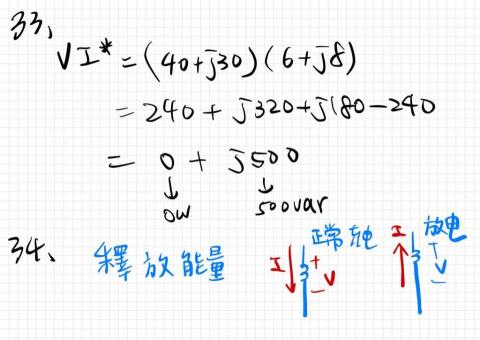 33、
VI* = (40+j30)(6+j8)
= 240 + j320+j180-240
= 0 + j500
↓ ↓
0W 500var
34、 釋放能量
正常 放電
I + - V
I + - V